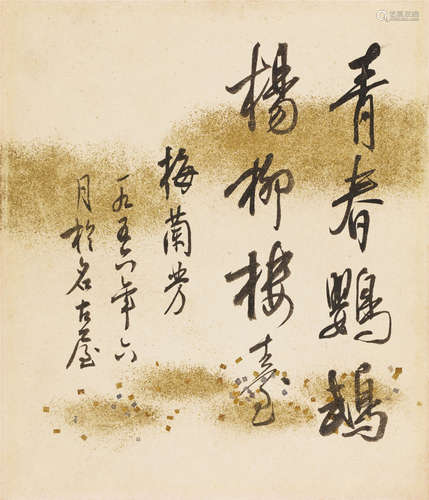 青春鸚鵡
楊柳樓臺
梅蘭芳
一九五六年六
月於名古屋